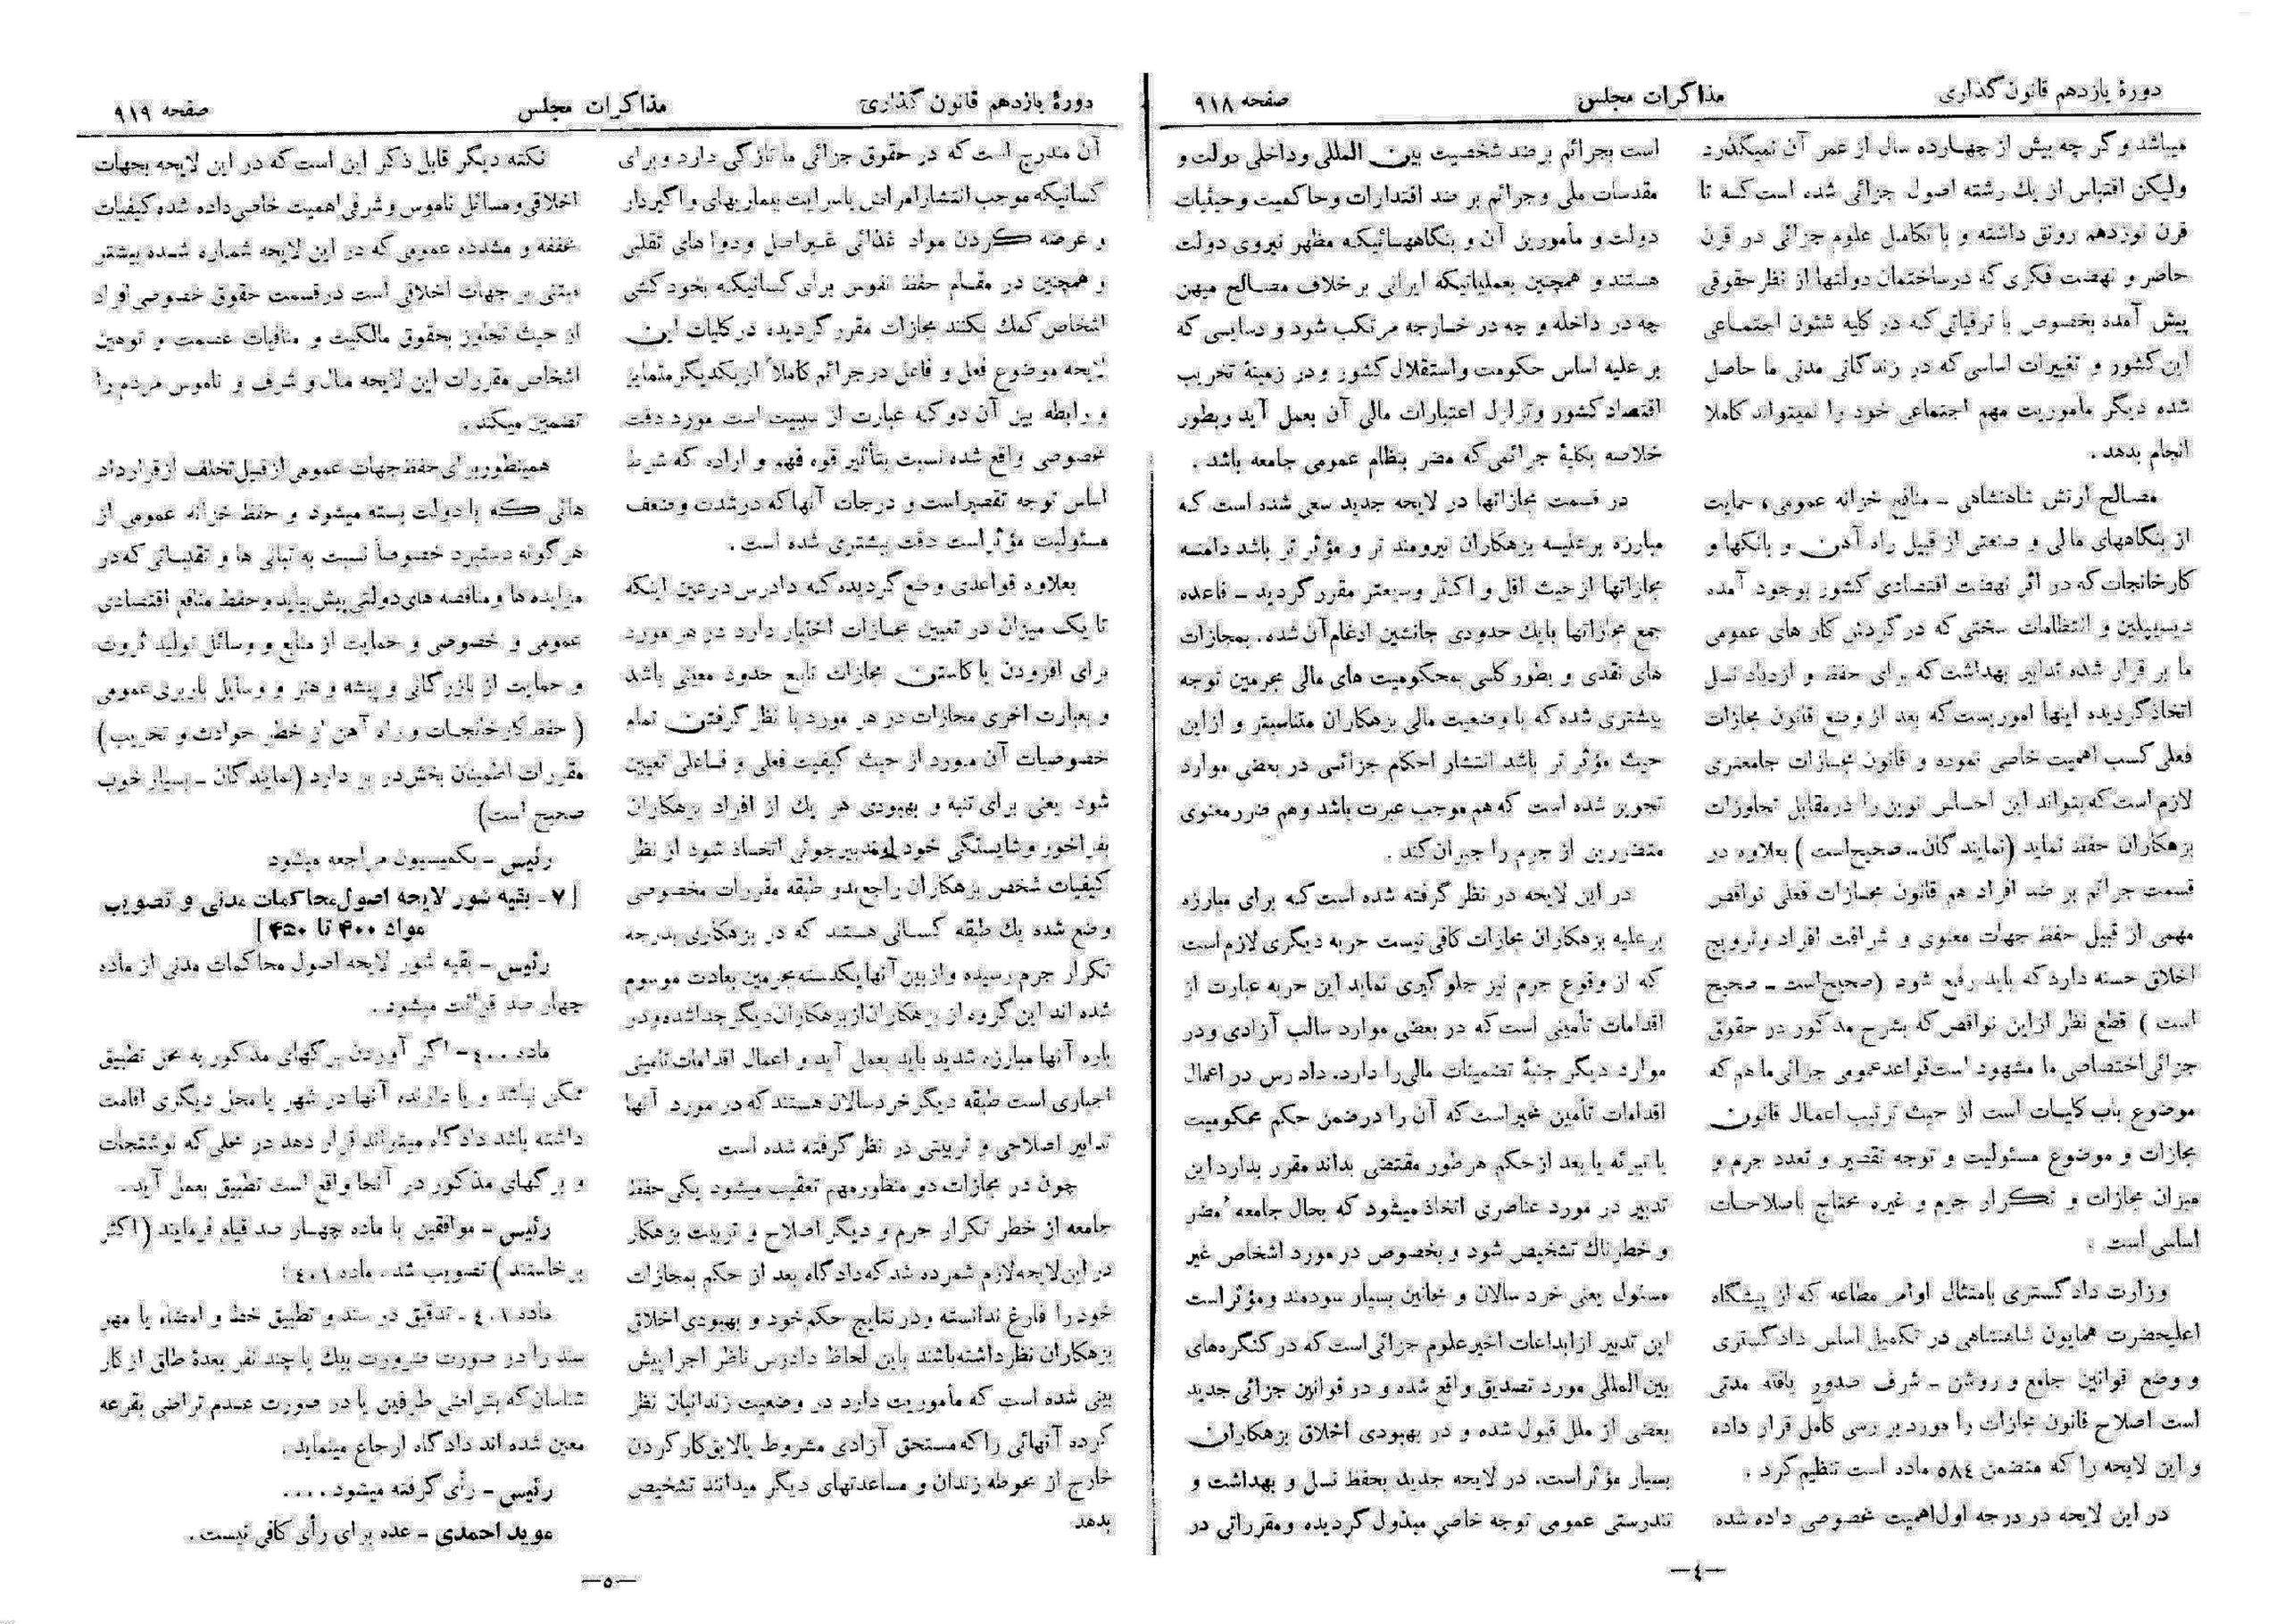 دورهٔ یازدهم قانون گذاری
مذاکرات مجلس
صفحه ۹۱۸
میباشد و گر چه بیش از چهارده سال از عمر آن نمیگذرد
ولیکن اقتباس از یك رشته اصول جزائی شده است که تا
قرن نوزدهم رونق داشته و با تکامل علوم جزائی در قرن
حاضر و نهضت فکری که در ساختمان دولتها از نظر حقوقی
پیش آمده بخصوص با ترقیاتی که در کلیه شئون اجتماعی
این کشور و تغییرات اساسی که در زندگانی مدنی ما حاصل
شده دیگر مأموریت مهم اجتماعی خود را نمیتواند کاملا
انجام بدهد .
مصالح ارتش شاهنشاهی ـ منافع خزانه عمومی ، حمایت
از بنگاههای مالی و صنعتی از قبیل راه آهن و بانکها و
کارخانجات که در اثر نهضت اقتصادی کشور بوجود آمده
دیسیپلین و انتظامات سختی که در گردش کار های عمومی
ما بر قرار شده تدابیر بهداشت که برای حفظ و ازدیاد نسل
اتخاذ گردیده اینها اموریست که بعد از وضع قانون مجازات
فعلی کسب اهمیت خاصی نموده و قانون مجازات جامعتری
لازم است که بتواند این احساس نوین را در مقابل تجاوزات
بزهکاران حفظ نماید (نمایندگان ـ صحیح است ) بعلاوه در
قسمت جرائم بر ضد افراد هم قانون مجازات فعلی نواقص
مهمی از قبیل حفظ جهات معنوی و شرافت افراد و ترویج
اخلاق حسنه دارد که باید رفع شود (صحیح است ـ صحیح
است ) قطع نظر از این نواقص که بشرح مذکور در حقوق
جزائی اختصاصی ما مشهود است قواعد عمومی جزائی ما هم که
موضوع باب کلیات است از حیث ترتیب اعمال قانون
مجازات و موضوع مسئولیت و توجه تقصیر و تعدد جرم و
میزان مجازات و تکرار جرم و غیره محتاج باصلاحات
اساسی است .
وزارت دادگستری بامتثال اوامر مطاعه که از پیشگاه
اعلیحضرت همایون شاهنشاهی در تکمیل اساس دادگستری
و وضع قوانین جامع و روشن ـ شرف صدور یافته مدتی
است اصلاح قانون مجازات را مورد بررسی کامل قرار داده
و این لایحه را که متضمن ٥٨٤ ماده است تنظیم کرد .
در این لایحه در درجه اول اهمیت خصوصی داده شده
است بجرائم بر ضد شخصیت بین المللی و داخلی دولت و
مقدسات ملی و جرائم بر ضد اقتدارات و حاکمیت و حیثیات
دولت و مأمورین آن و بنگاههائیکه مظهر نیروی دولت
هستند و همچنین بعملیاتیکه ایرانی بر خلاف مصالح میهن
چه در داخله و چه در خارجه مرتکب شود و دسایسی که
بر علیه اساس حکومت و استقلال کشور و در زمینهٔ تخریب
اقتصاد کشور و تزلزل اعتبارات مالی آن بعمل آید و بطور
خلاصه بکلیهٔ جرائمی که مضر بنظام عمومی جامعه باشد .
در قسمت مجازاتها در لایحه جدید سعی شده است که
مبارزه بر علیه بزهکاران نیرومند تر و مؤثر تر باشد دامنه
مجازاتها از حیث اقل و اکثر وسیعتر مقرر گردید ـ قاعده
جمع مجازاتها بایك حدودی جانشین ادغام آن شده . بمجازات
های نقدی و بطور کلی بمحکومیت های مالی مجرمین توجه
بیشتری شده که با وضعیت مالی بزهکاران متناسبتر و از این
حیث مؤثر تر باشد انتشار احکام جزائی در بعضی موارد
تجویز شده است که هم موجب عبرت باشد و هم ضرر معنوی
متضررین از جرم را جبران کند .
در این لایحه در نظر گرفته شده است که برای مبارزه
بر علیه بزهکاران مجازات کافی نیست حربه دیگری لازم است
که از وقوع جرم نیز جلوگیری نماید این حربه عبارت از
اقدامات تأمینی است که در بعضی موارد سالب آزادی و در
موارد دیگر جنبهٔ تضمینات مالی را دارد. دادرس در اعمال
اقدامات تأمین مخیر است که آن را در ضمن حکم محکومیت
یا تبرئه یا بعد از حکم هر طور مقتضی بداند مقرر بدارد این
تدبیر در مورد عناصری اتخاذ میشود که بحال جامعه مضر
و خطرناك تشخیص شود و بخصوص در مورد اشخاص غیر
مسئول یعنی خرد سالان و مجانین بسیار سودمند و مؤثر است
این تدبیر از ابداعات اخیر علوم جزائی است که در کنگره های
بین المللی مورد تصدیق واقع شده و در قوانین جزائی جدید
بعضی از ملل قبول شده و در بهبودی اخلاق بزهکاران
بسیار مؤثر است. در لایحه جدید بحفظ نسل و بهداشت و
تندرستی عمومی توجه خاصی مبذول گردیده و مقرراتی در
ـ٤ـ
دورهٔ یازدهم قانون گذاری
مذاکرات مجلس
صفحه ۹۱۹
آن مندرج است که در حقوق جزائی ما تازگی دارد و برای
کسانیکه موجب انتشار امراض یا سرایت بیماریهای واگیردار
و عرضه کردن مواد غذائی غیر اصل و دوا های تقلبی
و همچنین در مقام حفظ نفوس برای کسانیکه بخودکشی
اشخاص کمك بکنند مجازات مقرر گردیده در کلیات این
لایحه موضوع فعل و فاعل در جرائم کاملاً از یکدیگر متمایز
و رابطه بین آن دو که عبارت از سببیت است مورد دقت
خصوصی واقع شده نسبت بتأثیر قوه فهم و اراده که شرط
اساس توجه تقصیر است و درجات آنها که در شدت و ضعف
مسئولیت مؤثر است دقت بیشتری شده است .
بعلاوه قواعدی وضع گردیده که دادرس در عین اینکه
تا یک میزان در تعیین مجازات اختیار دارد در هر مورد
برای افزودن یا کاستن مجازات تابع حدود معینی باشد
و بعبارت اخری مجازات در هر مورد با نظر گرفتن تمام
خصوصیات آن مورد از حیث کیفیت فعلی و فاعلی تعیین
شود یعنی برای تنبه و بهبودی هر یك از افراد بزهکاران
بفراخور و شایستگی خود او تدبیر جوئی اتخاذ شود از نظر
کیفیات شخص بزهکاران راجع بدو طبقه مقررات مخصوصی
وضع شده یك طبقه کسانی هستند که در بزهکاری بدرجه
تکرار جرم رسیده و از بین آنها یکدسته مجرمین بعادت موسوم
شده اند این گروه از بزهکاران از بزهکاران دیگر جدا شده و در
باره آنها مبارزه شدید باید بعمل آید و اعمال اقدامات تأمینی
اجباری است طبقه دیگر خردسالان هستند که در مورد آنها
تدابیر اصلاحی و تربیتی در نظر گرفته شده است
چون در مجازات دو منظور مهم تعقیب میشود یکی حفظ
جامعه از خطر تکرار جرم و دیگر اصلاح و تربیت بزهکار
در این لایحه لازم شمرده شد که دادگاه بعد از حکم بمجازات
خود را فارغ ندانسته و در نتایج حکم خود و بهبودی اخلاق
بزهکاران نظر داشته باشند باین لحاظ دادرس ناظر اجرا پیش
بینی شده است که مأموریت دارد در وضعیت زندانیان نظر
کرده آنهائی را که مستحق آزادی مشروط یا لایق کار کردن
خارج از محوطه زندان و مساعدتهای دیگر میدانند تشخیص
بدهد
نکته دیگر قابل ذکر این است که در این لایحه بجهات
اخلاقی و مسائل ناموس و شرفی اهمیت خاصی داده شده کیفیات
مخففه و مشدده عمومی که در این لایحه شماره شده بیشتر
مبتنی بر جهات اخلاقی است در قسمت حقوق خصوصی افراد
از حیث تجاوز بحقوق مالکیت و منافیات عصمت و توهین
اشخاص مقررات این لایحه مال و شرف و ناموس مردم را
تضمین میکند .
همینطور برای حفظ جهات عمومی از قبیل تخلف از قرار داد
هائی که با دولت بسته میشود و حفظ خزانه عمومی از
هر گونه دستبرد خصوصاً نسبت به تبانی ها و تقلباتی که در
مزایده ها و مناقصه های دولتی پیش بیاید و حفظ منافع اقتصادی
عمومی و خصوصی و حمایت از منابع و وسائل تولید ثروت
و حمایت از بازرگانی و پیشه و هنر و وسایل باربری عمومی
( حفظ کارخانجات و راه آهن از خطر حوادث و تخریب)
مقررات اطمینان بخش در بر دارد (نمایندگان ـ بسیار خوب
صحیح است)
رئیس ـ بکمیسیون مراجعه میشود
[ ۷ ـ بقیه شور لایحه اصول محاکمات مدنی و تصویب
مواد ۴۰۰ تا ۴۵۰ ]
رئیس ـ بقیه شور لایحه اصول محاکمات مدنی از ماده
چهار صد قرائت میشود .
ماده ٤٠٠ ـ اگر آوردن برگهای مذکور به محل تطبیق
ممکن نباشد و یا دارنده آنها در شهر یا محل دیگری اقامت
داشته باشد دادگاه میتواند قرار دهد در محلی که نوشتجات
و برگهای مذکور در آنجا واقع است تطبیق بعمل آید.
رئیس ـ موافقین با ماده چهار صد قیام فرمایند (اکثر
برخاستند ) تصویب شد . ماده ٤٠١ :
ماده ٤٠١ ـ تدقیق در سند و تطبیق خط و امضاء یا مهر
سند را در صورت ضرورت بیك یا چند نفر بعدهٔ طاق از کار
شناسان که بتراضی طرفین یا در صورت عدم تراضی بقرعه
معین شده اند دادگاه ارجاع مینماید.
رئیس ـ رأی گرفته میشود . . . .
موید احمدی ـ عده برای رأی کافی نیست .
ـ٥ـ